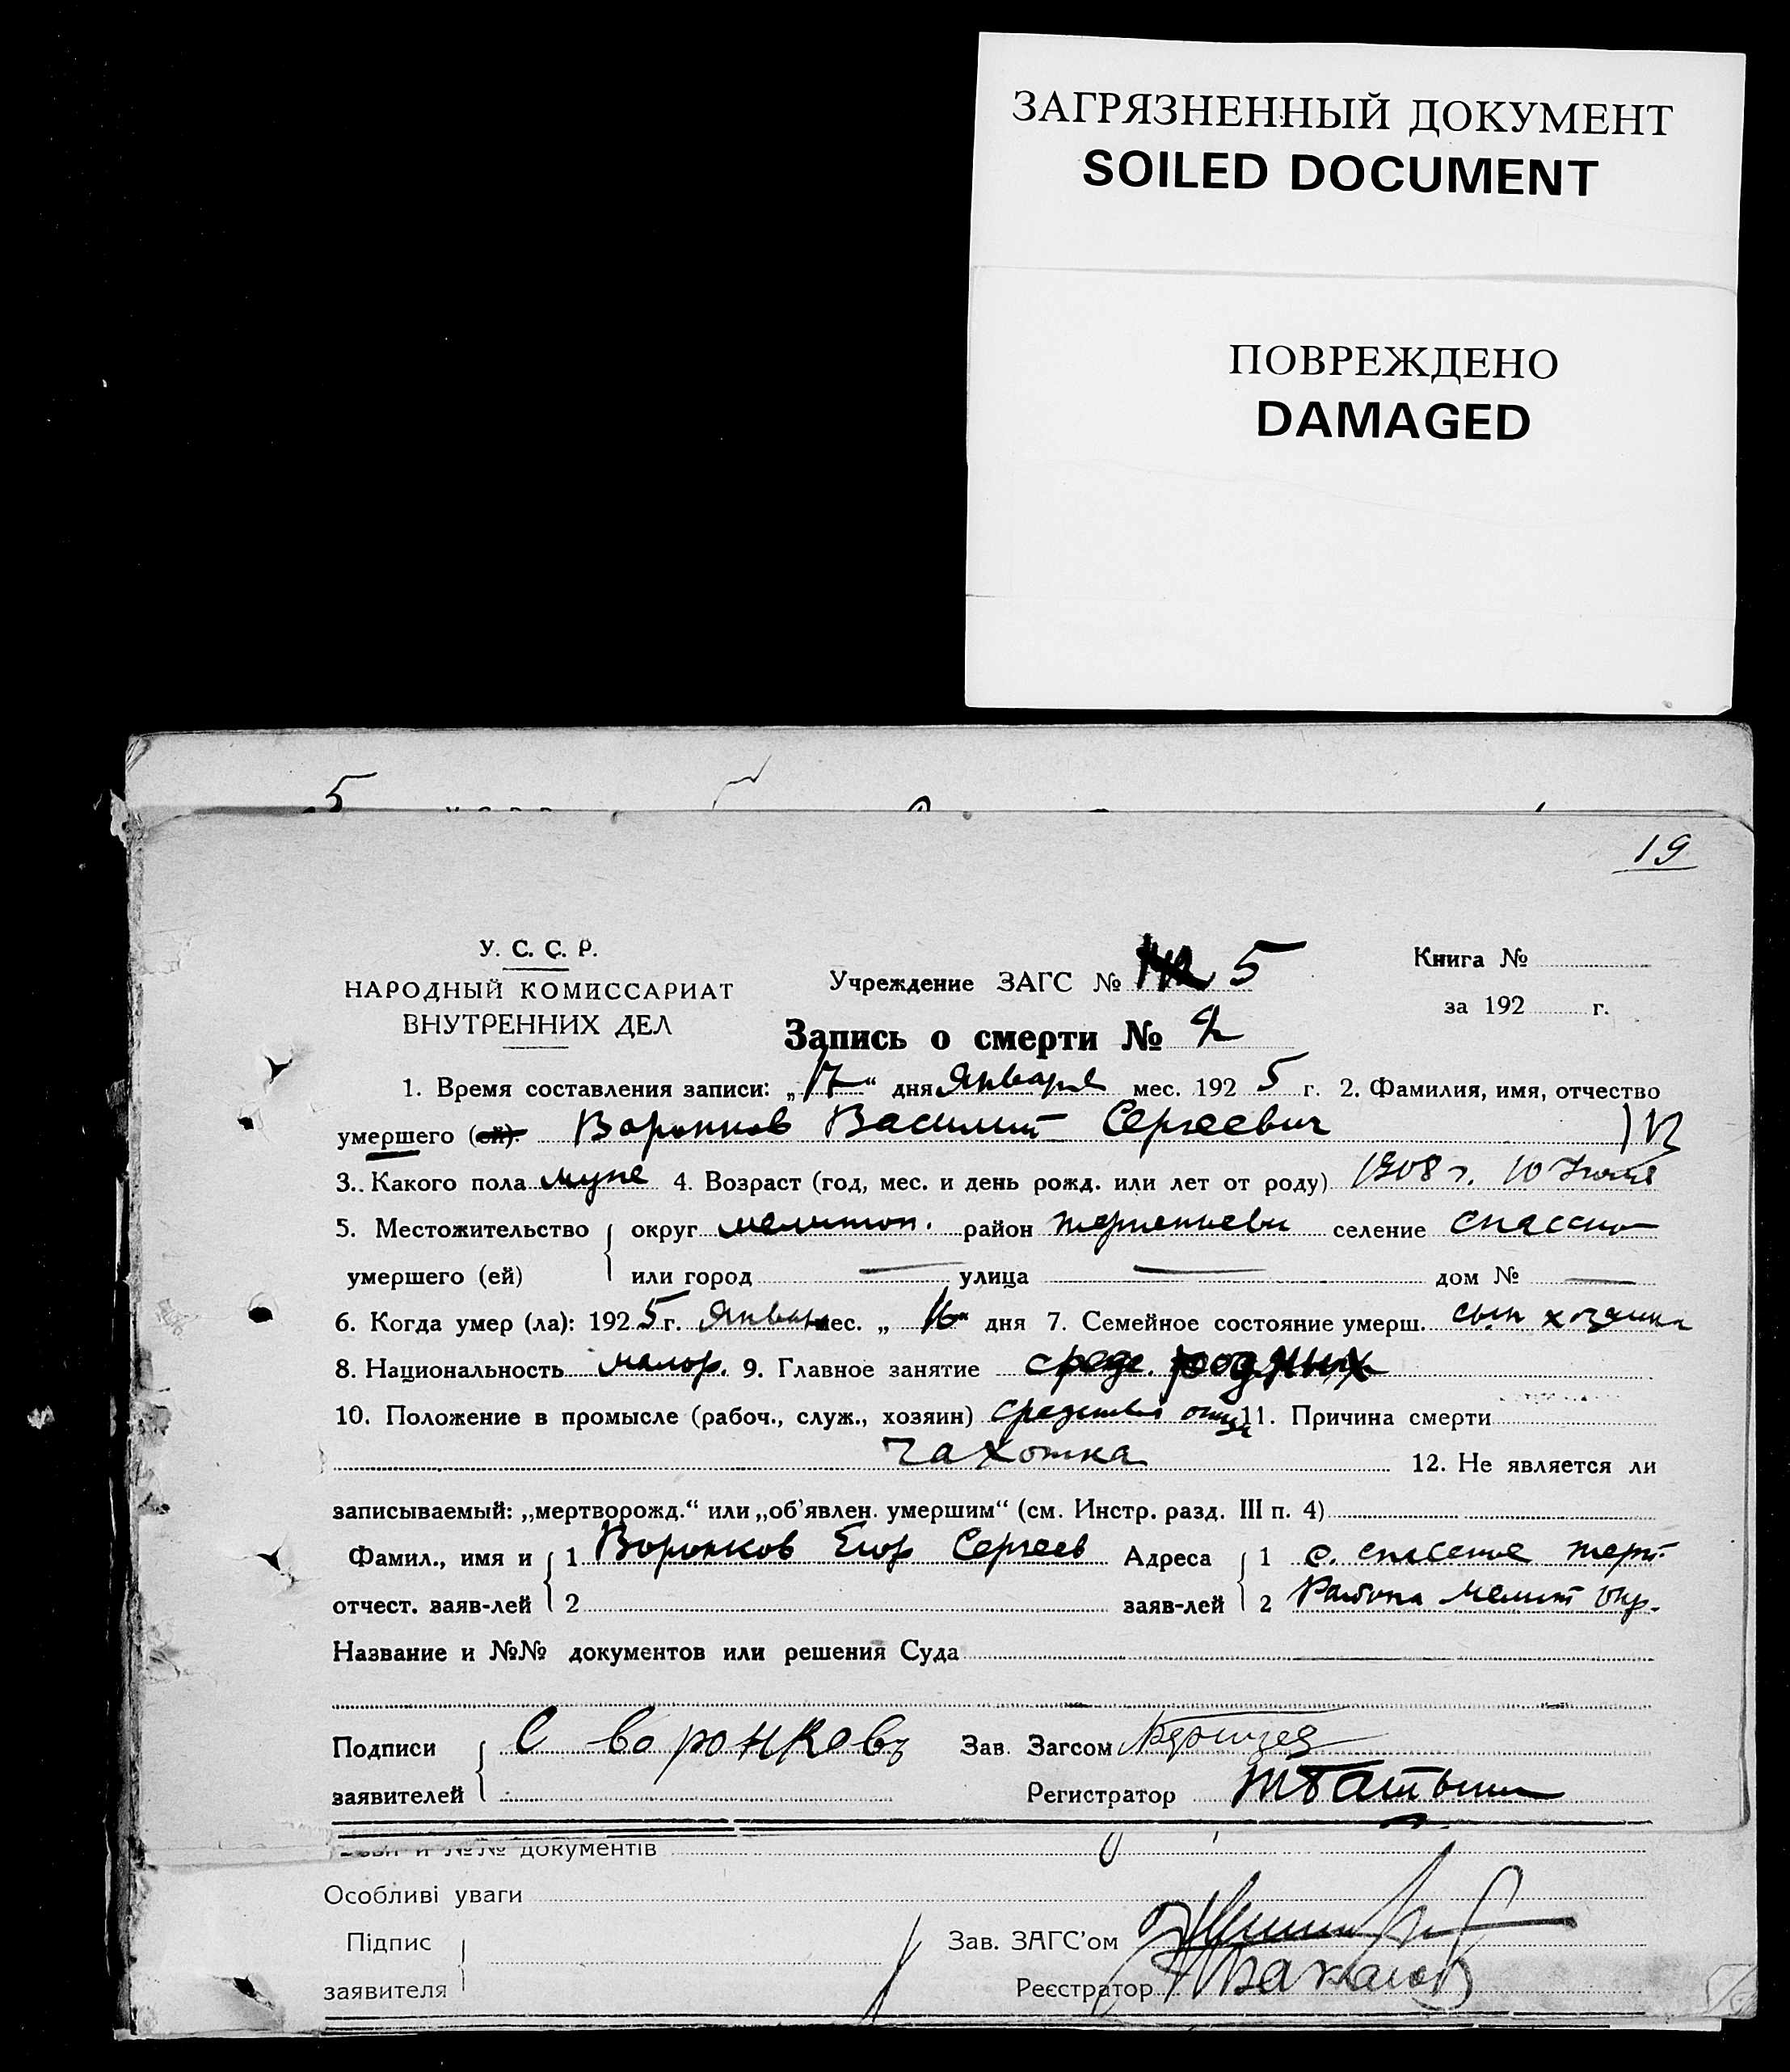 ЗАГРЯЗНЕННЫЙ ДОКУМЕНТ
SOILED DOCUMENT
ПОВРЕЖДЕНО
DAMAGED
5
19
У. С. С. Р.
НАРОДНЫЙ КОМИССАРИАТ
ВНУТРЕННИХ ДЕЛ
Учреждение ЗАГС № 5
Книга №
за 192 г.
Запись о смерти № 2
1. Время составления записи: „17“ дня Января мес. 1925 г. 2. Фамилия, имя, отчество
умершего (ей). Воронков Василий Сергеевич
3. Какого пола муже 4. Возраст (год, мес. и день рожд. или лет от роду) 1908 г. 10
5. Местожительство округ мелитоп. район терпеньевск селение спасско
умершего (ей) или город — улица — дом № —
6. Когда умер (ла): 1925 г. Января мес. „16“ дня 7. Семейное состояние умерш. сын хозяина
8. Национальность малор. 9. Главное занятие средс. родных
10. Положение в промысле (рабоч., служ., хозяин) средствия отца 11. Причина смерти
чахотка 12. Не является ли
записываемый: „мертворожд.“ или „об'явлен. умершим“ (см. Инстр. разд. III п. 4)
Фамил., имя и 1 Воронков Егор Сергеев Адреса 1 с. терп.
отчест. заяв-лей 2 заяв-лей 2 Района Мелит Окр.
Название и №№ документов или решения Суда
Подписи С воронковъ Зав. Загсом
заявителей Регистратор
и №№ документів
Особливі уваги
Підпис Зав. ЗАГС'ом
заявителя Реєстратор